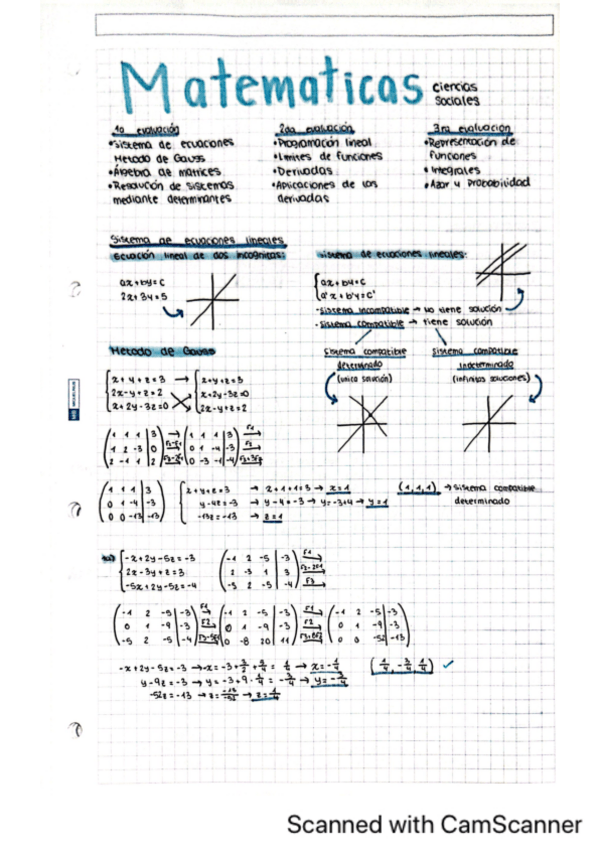 Matematicas ciencias
sociales
1a evaluación
•Sistema de ecuaciones
Metodo de Gauss
•Álgebra de matrices
•Resolución de sistemas
mediante determinantes
2da evaluación
•Programación lineal
•Limites de funciones
•Derivadas
•Aplicaciones de las
derivadas
3ra evaluación
•Representación de
funciones
•Integrales
•Azar y Probabilidad
Sistema de ecuaciones lineales
Ecuación lineal de dos incognitas:
ax+by=c
2x+3y=5
sistema de ecuaciones lineales:
ax+by=c
a'x+b'y=c'
-sistema incompatible → no tiene solución
-sistema compatible → tiene solución
Sistema compatible
determinado
(unica solución)
Sistema compatible
indeterminado
(infinitas soluciones)
Metodo de Gauss
x+y+z=3 → x+y+z=3
2x-y+z=2 x+2y-3z=0
x+2y-3z=0 2x-y+z=2
1 1 1 | 3 → 1 1 1 | 3 F1
1 2 -3 | 0 0 1 -4 | -3 F2
2 -1 1 | 2 0 -3 -1 | -4
1 1 1 | 3
0 1 -4 | -3
0 0 -13 | -13
x+y+z=3 → x+1+1=3 → x=1
y-4z=-3 → y-4=-3 → y=-3+4 → y=1
-13z=-13 → z=1
(1,1,1) → Sistema compatible
determinado
-x+2y-5z=-3
2x-3y+z=3
-5x+2y-5z=-4
-1 2 -5 | -3 F1
2 -3 1 | 3
-5 2 -5 | -4 F3
-1 2 -5 | -3 F1 -1 2 -5 | -3 F1 -1 2 -5 | -3
0 1 -9 | -3 F2 0 1 -9 | -3 F2 0 1 -9 | -3
-5 2 -5 | -4 0 -8 20 | 11 0 0 -52 | -13
-x+2y-5z=-3 → -x=-3+3/2+5/4=1/4 → x=-1/4
y-9z=-3 → y=-3+9·1/4=-3/4 → y=-3/4
-52z=-13 → z=-13/-52 → z=1/4
(1/4, -3/4, 1/4) ✓
Scanned with CamScanner